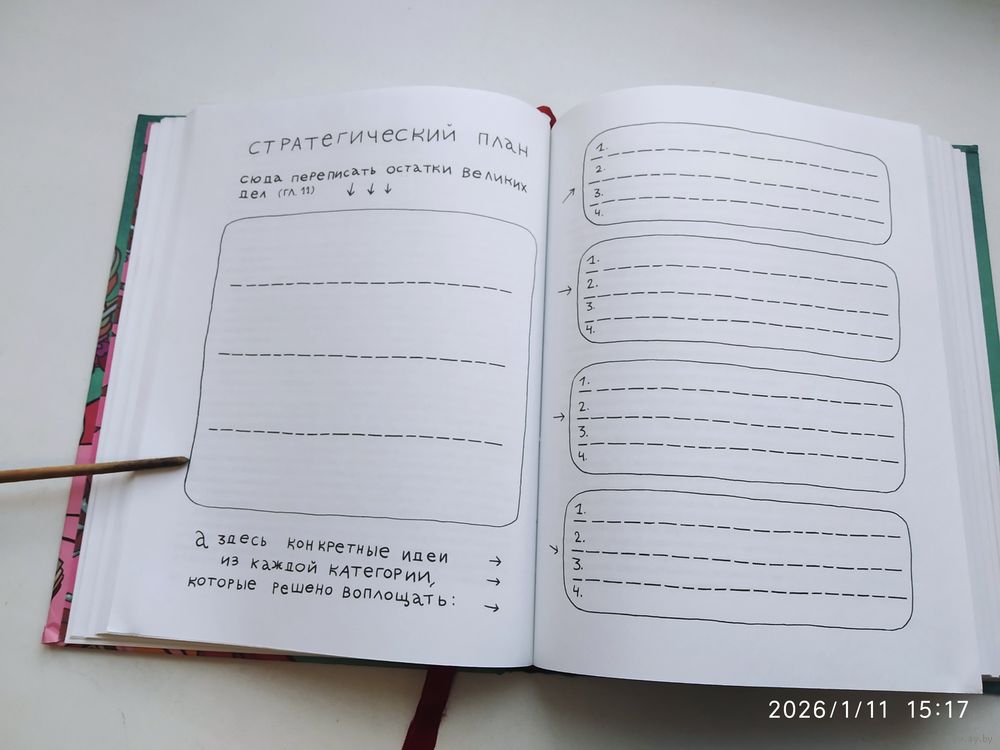 СТРАТЕГИЧЕСКИЙ ПЛАН
СЮДА ПЕРЕПИСАТЬ ОСТАТКИ ВЕЛИКИХ
ДЕЛ (ГЛ. 11) ↓ ↓ ↓
А ЗДЕСЬ КОНКРЕТНЫЕ ИДЕИ →
ИЗ КАЖДОЙ КАТЕГОРИИ, →
КОТОРЫЕ РЕШЕНО ВОПЛОЩАТЬ: →
1.
2.
3.
4.
1.
2.
3.
4.
1.
2.
3.
4.
1.
2.
3.
4.
2026/1/11 15:17
ay.by